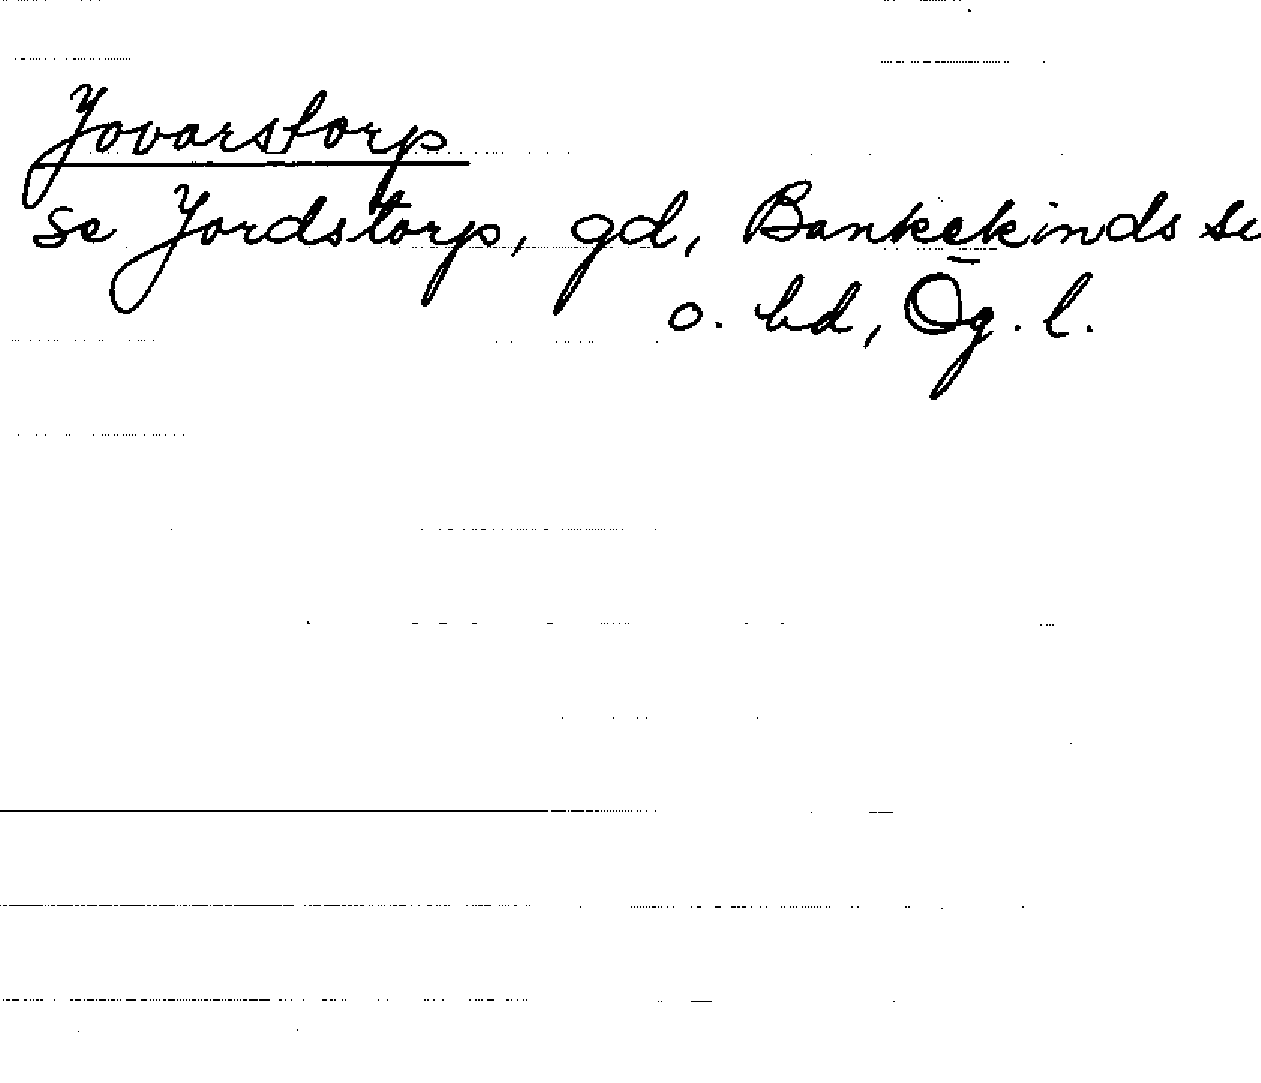 Jovarstorp
se Jordstorp, gd, Bankekinds sn
o. hd, Ög. l.